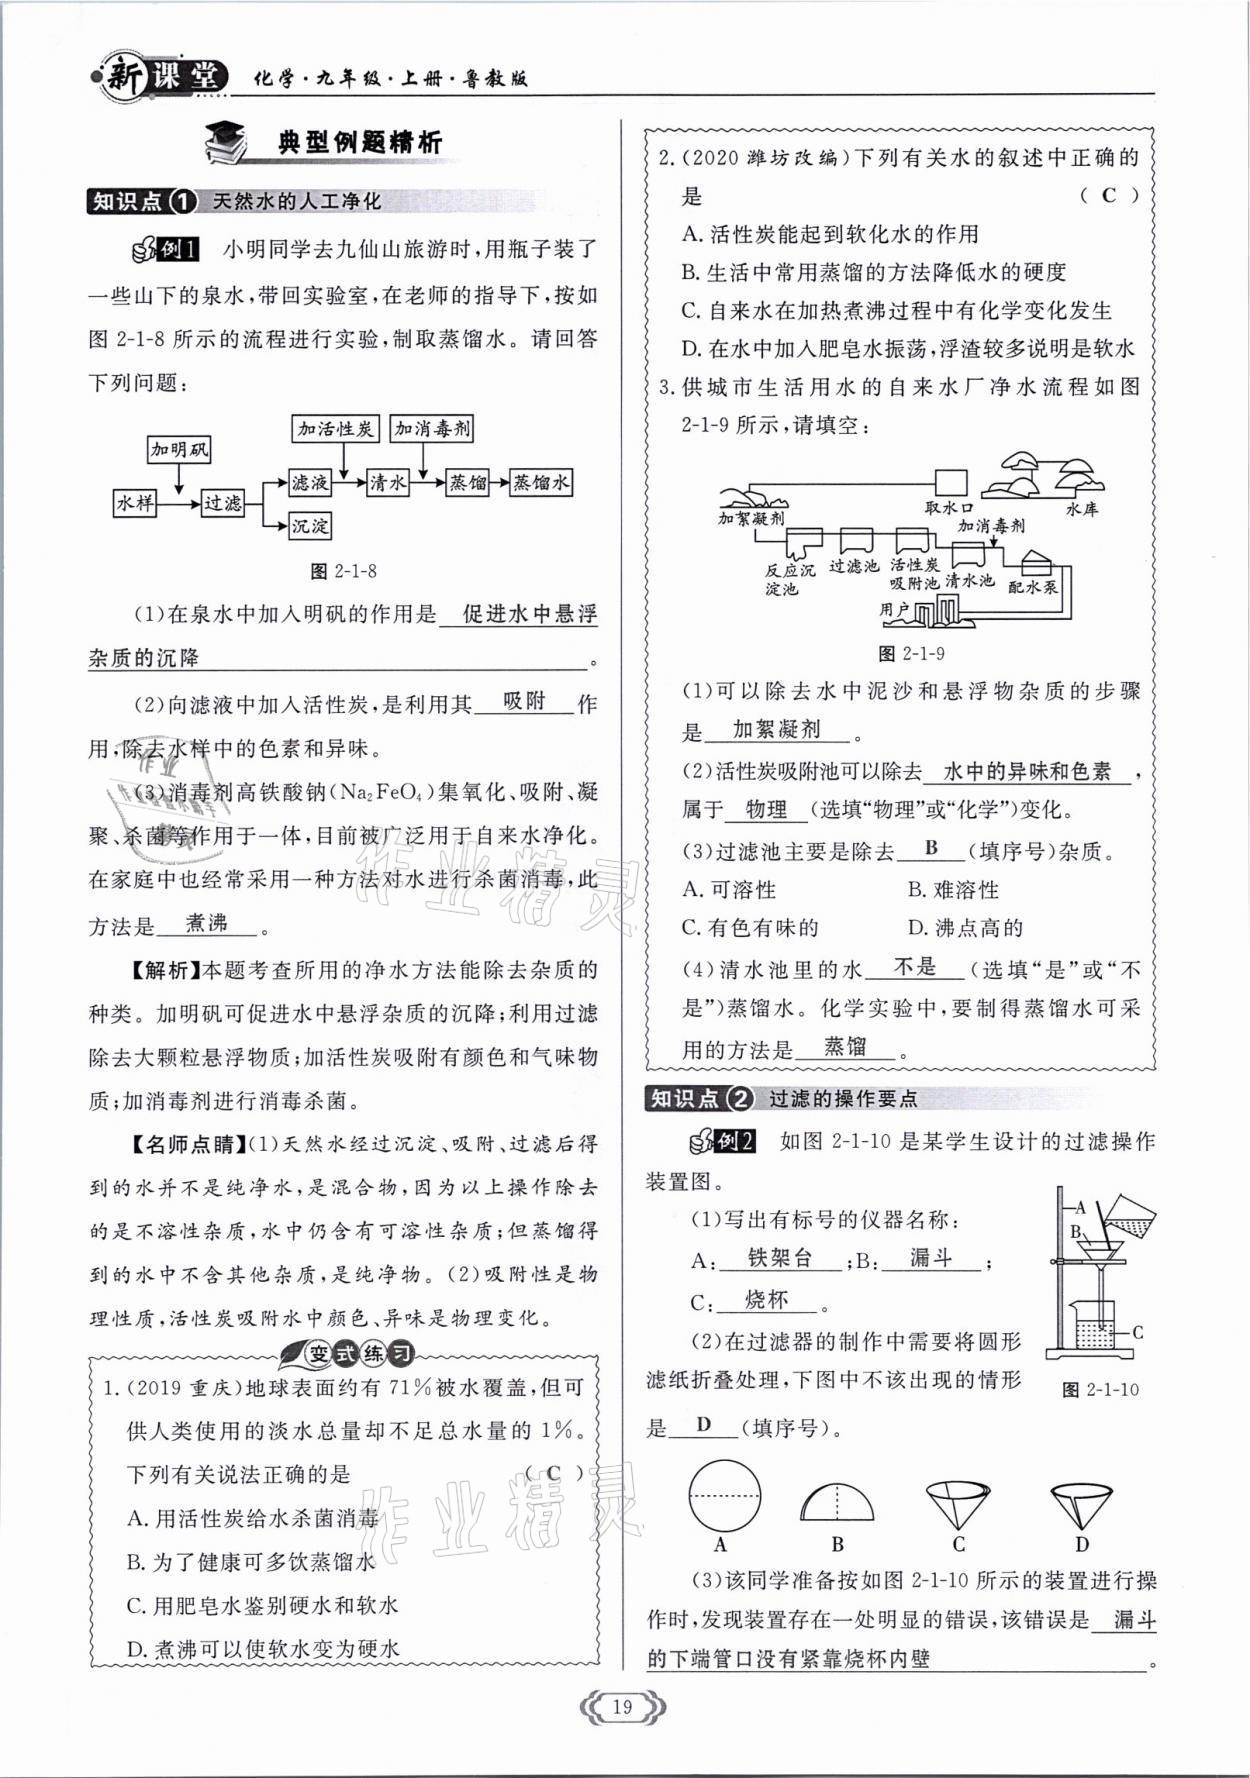 新课堂 化学·九年级·上册·鲁教版
典型例题精析
知识点① 天然水的人工净化
例1 小明同学去九仙山旅游时,用瓶子装了
一些山下的泉水,带回实验室,在老师的指导下,按如
图 2-1-8 所示的流程进行实验,制取蒸馏水。请回答
下列问题:
加活性炭 加消毒剂
加明矾
滤液 清水 蒸馏 蒸馏水
水样 过滤
沉淀
图 2-1-8
(1)在泉水中加入明矾的作用是 促进水中悬浮
杂质的沉降 。
(2)向滤液中加入活性炭,是利用其 吸附 作
用,除去水样中的色素和异味。
(3)消毒剂高铁酸钠(Na₂FeO₄)集氧化、吸附、凝
聚、杀菌等作用于一体,目前被广泛用于自来水净化。
在家庭中也经常采用一种方法对水进行杀菌消毒,此
方法是 煮沸 。
【解析】本题考查所用的净水方法能除去杂质的
种类。加明矾可促进水中悬浮杂质的沉降;利用过滤
除去大颗粒悬浮物质;加活性炭吸附有颜色和气味物
质;加消毒剂进行消毒杀菌。
【名师点睛】(1)天然水经过沉淀、吸附、过滤后得
到的水并不是纯净水,是混合物,因为以上操作除去
的是不溶性杂质,水中仍含有可溶性杂质;但蒸馏得
到的水中不含其他杂质,是纯净物。(2)吸附性是物
理性质,活性炭吸附水中颜色、异味是物理变化。
变式练习
1.(2019 重庆)地球表面约有 71%被水覆盖,但可
供人类使用的淡水总量却不足总水量的 1%。
下列有关说法正确的是 ( C )
A.用活性炭给水杀菌消毒
B.为了健康可多饮蒸馏水
C.用肥皂水鉴别硬水和软水
D.煮沸可以使软水变为硬水
2.(2020 潍坊改编)下列有关水的叙述中正确的
是 ( C )
A.活性炭能起到软化水的作用
B.生活中常用蒸馏的方法降低水的硬度
C.自来水在加热煮沸过程中有化学变化发生
D.在水中加入肥皂水振荡,浮渣较多说明是软水
3.供城市生活用水的自来水厂净水流程如图
2-1-9 所示,请填空:
加絮凝剂 取水口 水库
加消毒剂
反应沉淀池 过滤池 活性炭吸附池 清水池 配水泵
用户
图 2-1-9
(1)可以除去水中泥沙和悬浮物杂质的步骤
是 加絮凝剂 。
(2)活性炭吸附池可以除去 水中的异味和色素 ,
属于 物理 (选填“物理”或“化学”)变化。
(3)过滤池主要是除去 B (填序号)杂质。
A.可溶性 B.难溶性
C.有色有味的 D.沸点高的
(4)清水池里的水 不是 (选填“是”或“不
是”)蒸馏水。化学实验中,要制得蒸馏水可采
用的方法是 蒸馏 。
知识点② 过滤的操作要点
例2 如图 2-1-10 是某学生设计的过滤操作
装置图。
(1)写出有标号的仪器名称:
A: 铁架台 ;B: 漏斗 ;
C: 烧杯 。
A
B
C
图 2-1-10
(2)在过滤器的制作中需要将圆形
滤纸折叠处理,下图中不该出现的情形
是 D (填序号)。
A B C D
(3)该同学准备按如图 2-1-10 所示的装置进行操
作时,发现装置存在一处明显的错误,该错误是 漏斗
的下端管口没有紧靠烧杯内壁 。
19
作业精灵
作业精灵